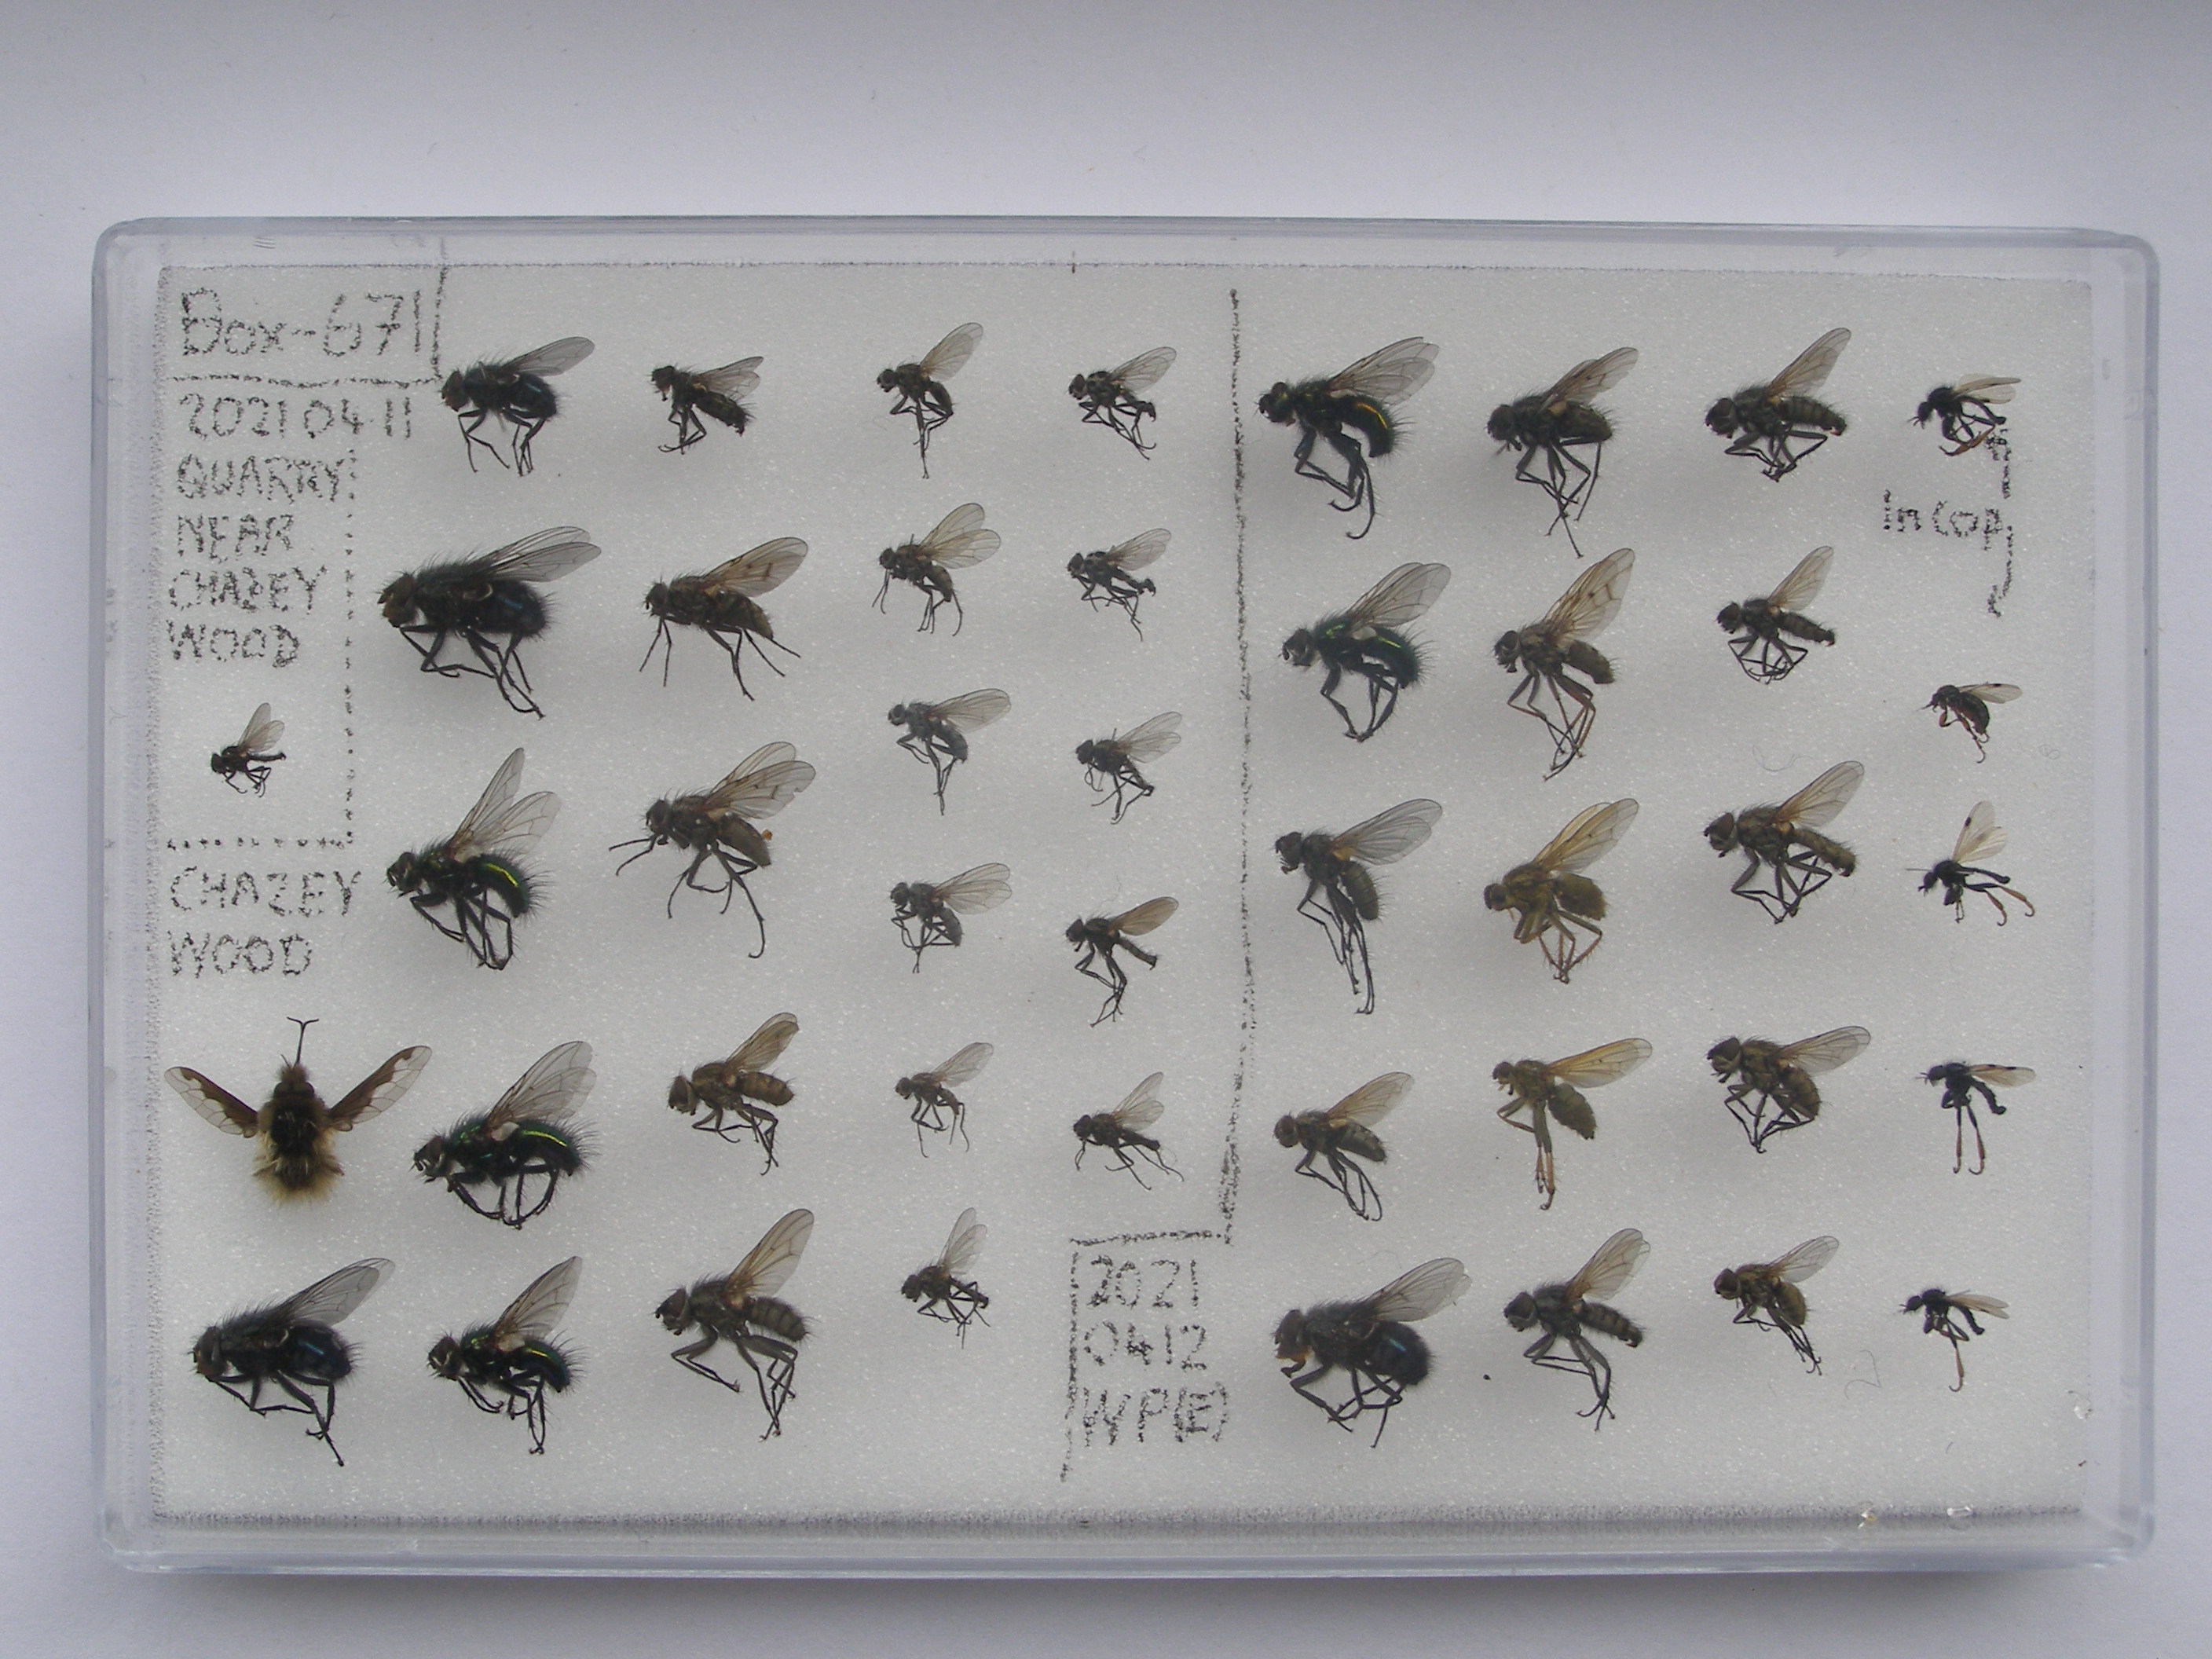 Box-671
2021 04 11
QUARRY
NEAR
CHAZEY
WOOD
CHAZEY
WOOD
in cop
2021
04 12
WP(E)